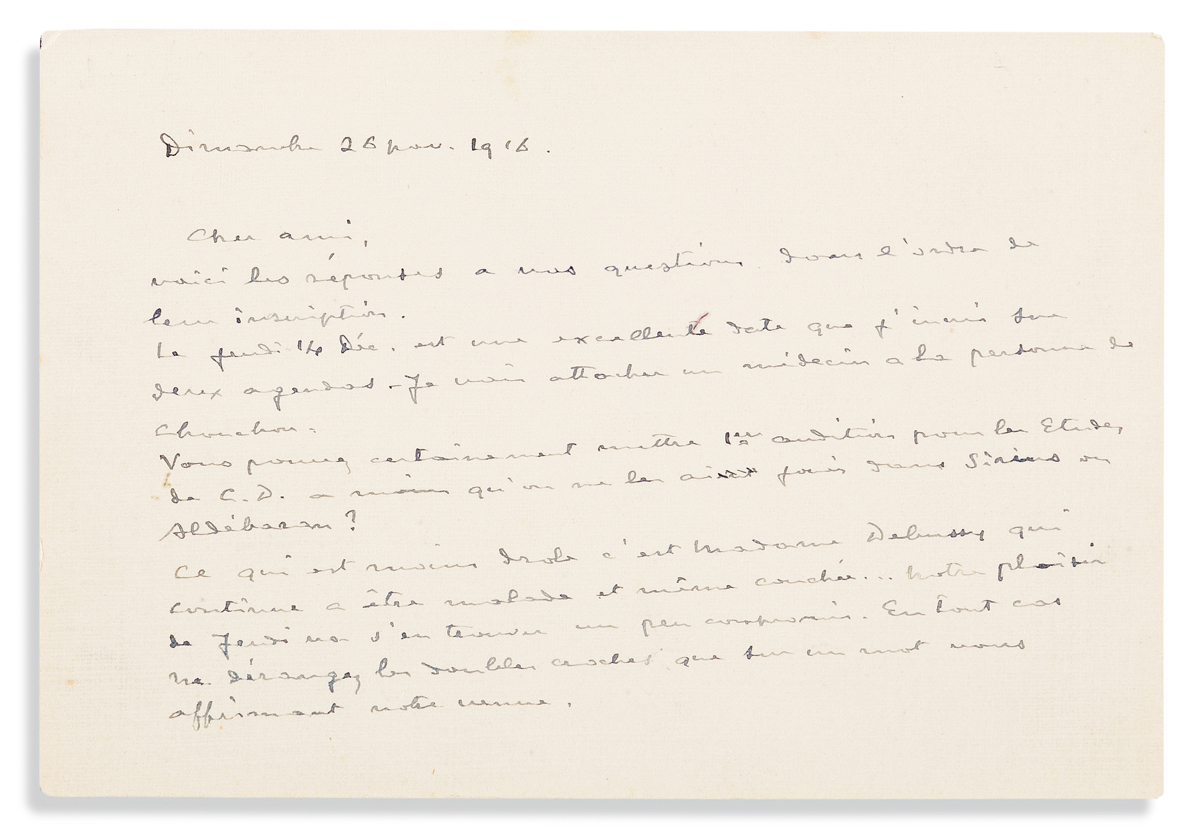 Dimanche 26 nov. 1916.
Cher ami,
voici les réponses a vos questions dans l'ordre de
leur inscription.
Le jeudi 14 Déc. est une excellente date que j'inscris sur
deux agendas. - Je vais attacher un médecin a la personne de
Chouchou.
Vous pouvez certainement mettre 1ère audition pour les Etudes
de C. D. a moins qu'on ne les ait joués dans Sirius ou
Aldébaran?
Ce qui est moins drole c'est Madame Debussy qui
continue a être malade et même couchée... Notre plaisir
de Jeudi va s'en trouver un peu compromis. En tout cas
ne dérangez les doubles croches que sur un mot vous
affirmant notre venue.